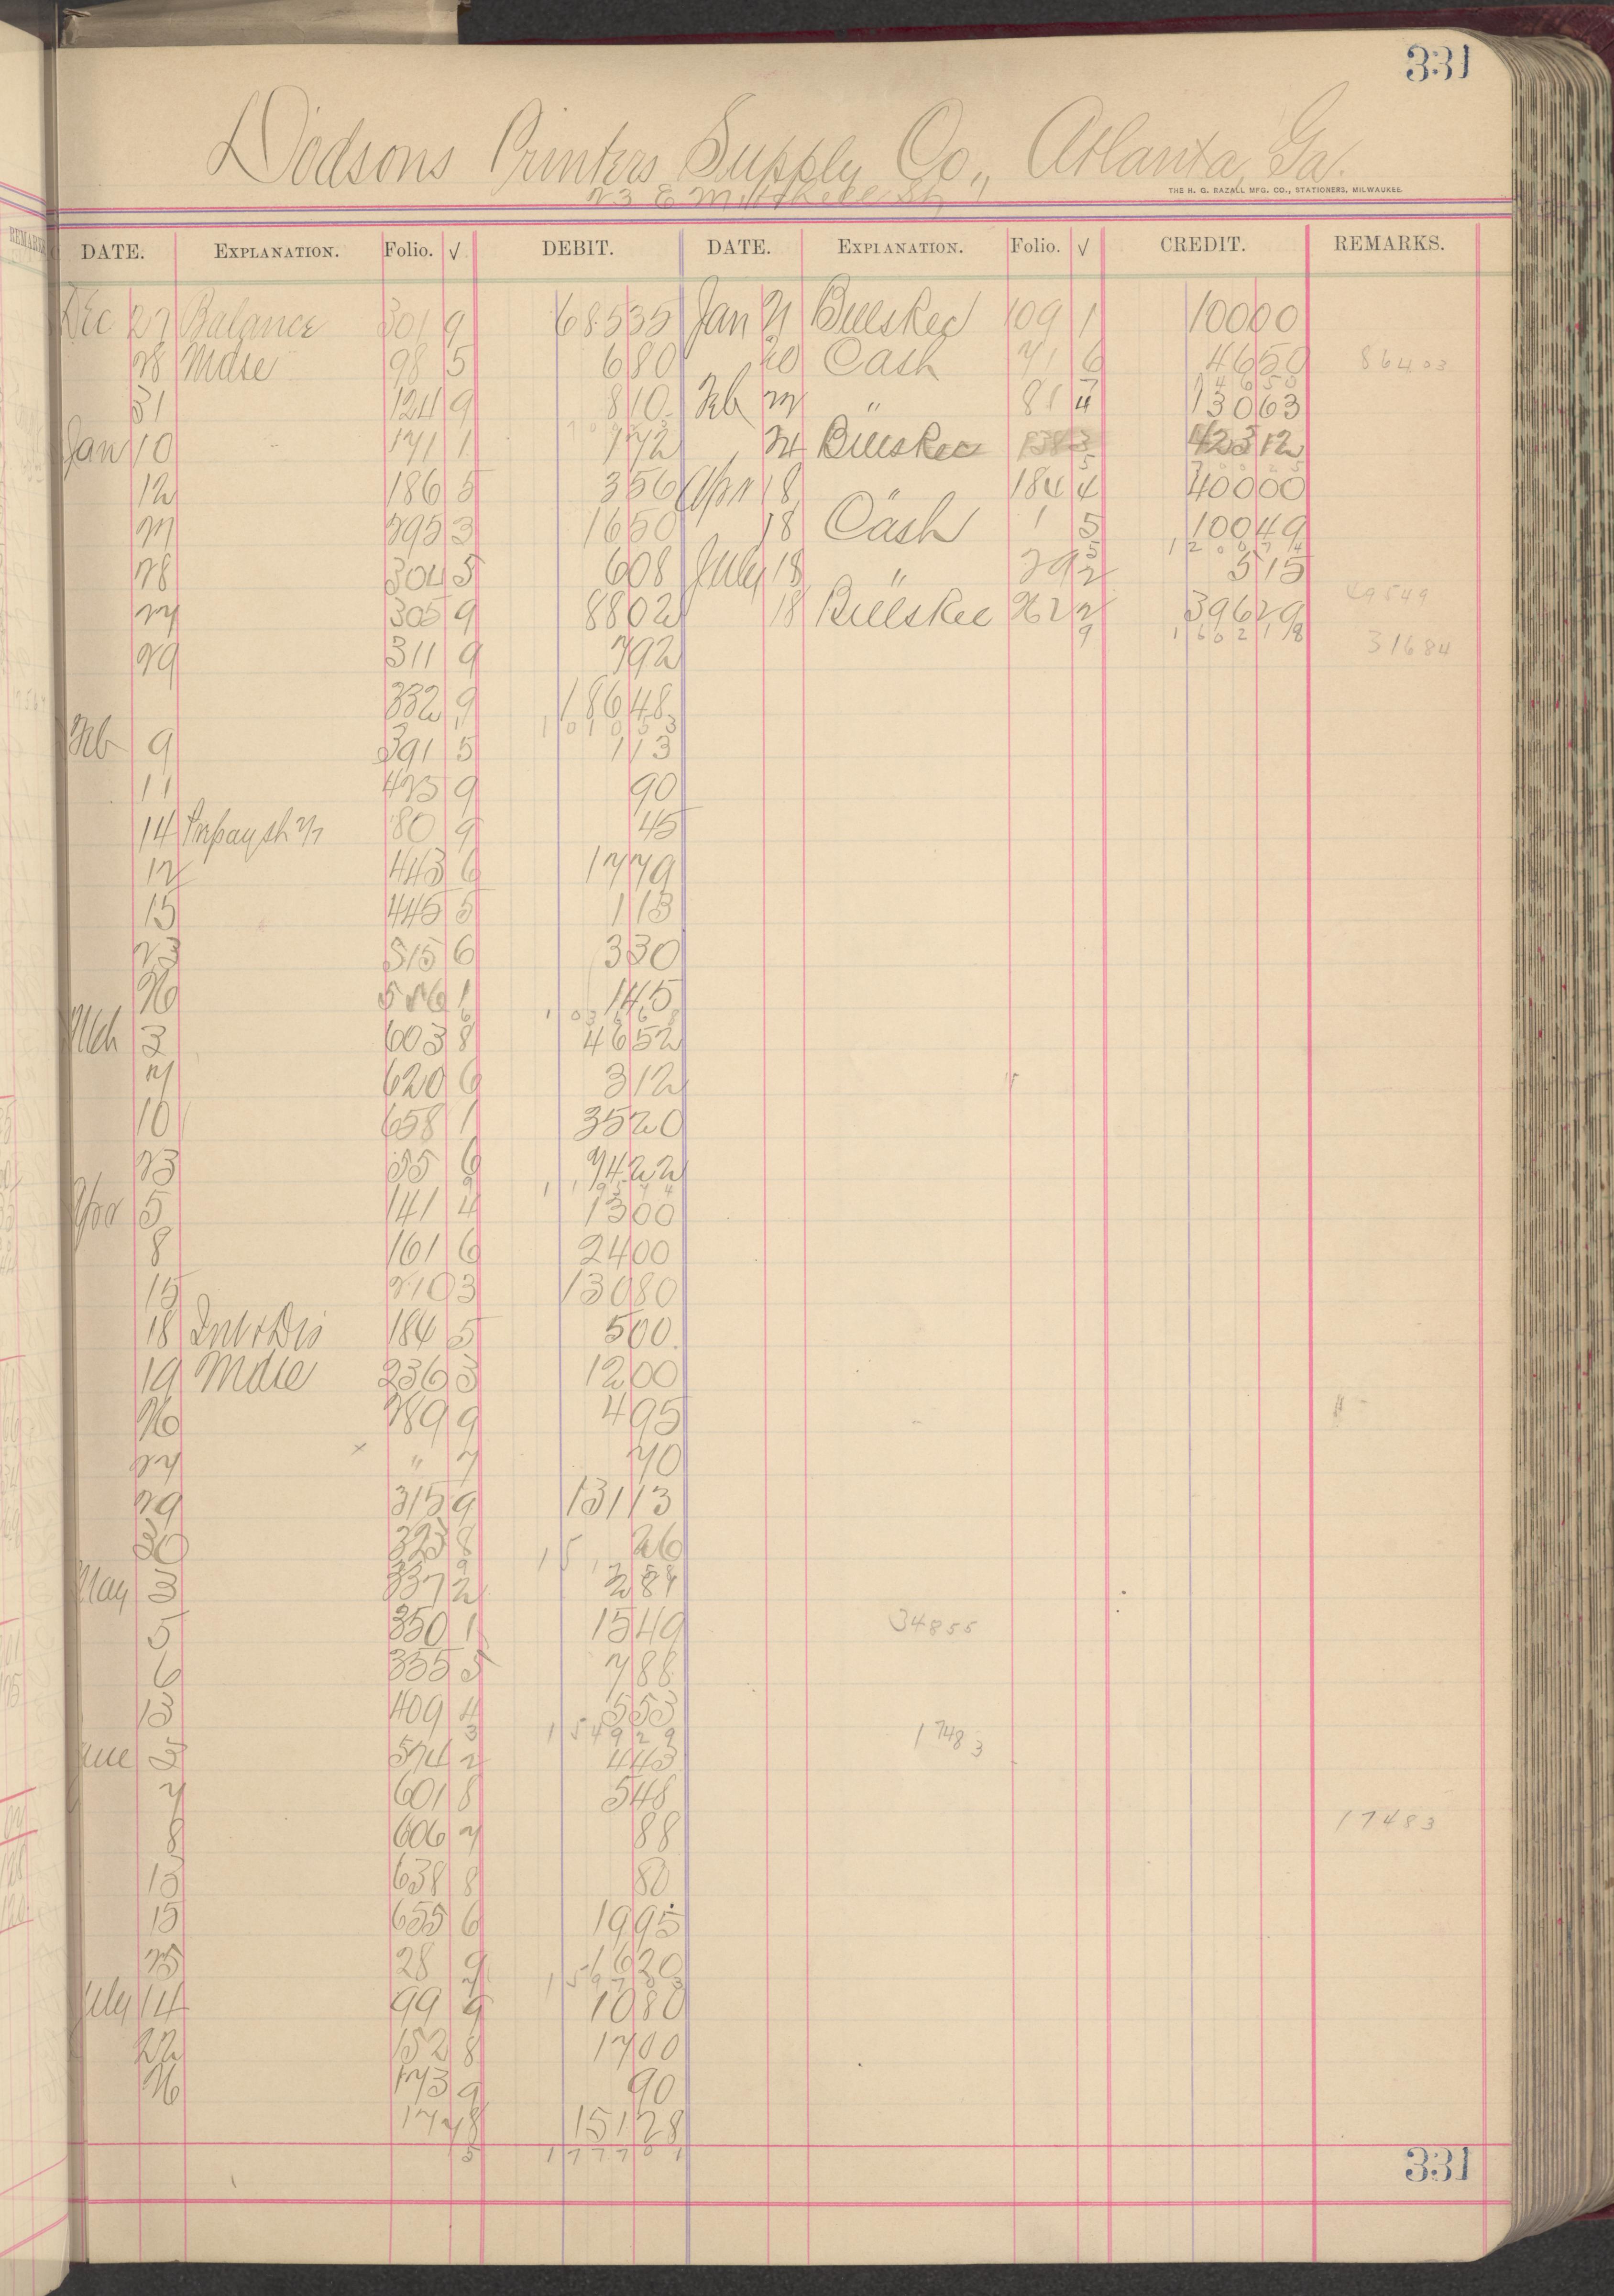 331
Dodsons Printers Supply Co., Atlanta, Ga.
THE H. G. RAZALL MFG. CO., STATIONERS, MILWAUKEE.
23 E Mitchell St
DATE. EXPLANATION. Folio. √ DEBIT. DATE. EXPLANATION. Folio. √ CREDIT. REMARKS.
Dec 27 Balance 301 9 68535 Jan 21 BillsRec 109 1 10000
28 Mdse 98 5 680 20 Cash 71 6 4650 86403
14650
31 124 9 810 Feb 27 " 81 4 13063
Jan 10 171 1 172 24 BillsRec 42312
12 186 5 356 Apr 18 " 184 4 40000
27 295 3 1650 18 Cash 1 5 10049
120074
28 304 5 608 July 18 " 29 2 515
27 305 9 8802 18 BillsRec 262 2 39629 49549
9 160218
29 311 9 792 31684
332 9 18648
101053
Feb 9 391 5 113
11 425 9 90
14 80 9 45
12 443 6 1779
15 445 5 113
23 515 6 330
26 1 145
Mch 3 603 8 4652
7 620 6 312
10 658 1 3520
23 55 6 7422
Apr 5 141 4 1300
8 161 6 2400
15 210 3 13080
18 Int & Dis 184 5 500
19 Mdse 236 3 1200
26 289 9 495
27 × " 7 70
29 315 9 13113
30 323 8 26
May 3 337 2 287
5 350 1 1540 34855
6 355 5 788
13 409 4 553
3 154929 17483
June 3 574 2 443
7 601 8 548
8 606 7 88 17483
13 638 8 80
15 655 6 1995
25 28 9 1620
July 14 99 9 1080
22 152 8 1700
26 173 9 90
177 8 15128
5 177701
331